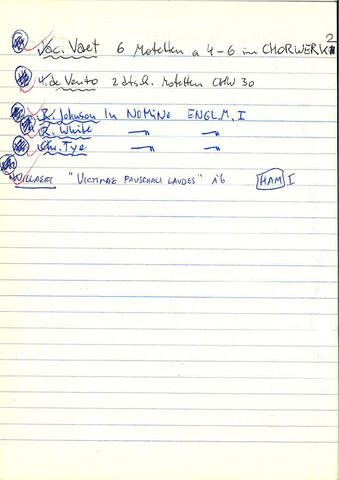 2
Jac. Vaet 6 Motetten a 4-6 im CHORWERK
J. de Vento 2 dtsch. Motetten CHW 30
R. Johnson In NOMINE ENGL.M. I
R. White –"– –"–
Chr. Tye –"– –"–
WILLAERT "VICTIMAE PASCHALI LAUDES" à 6 HAM I